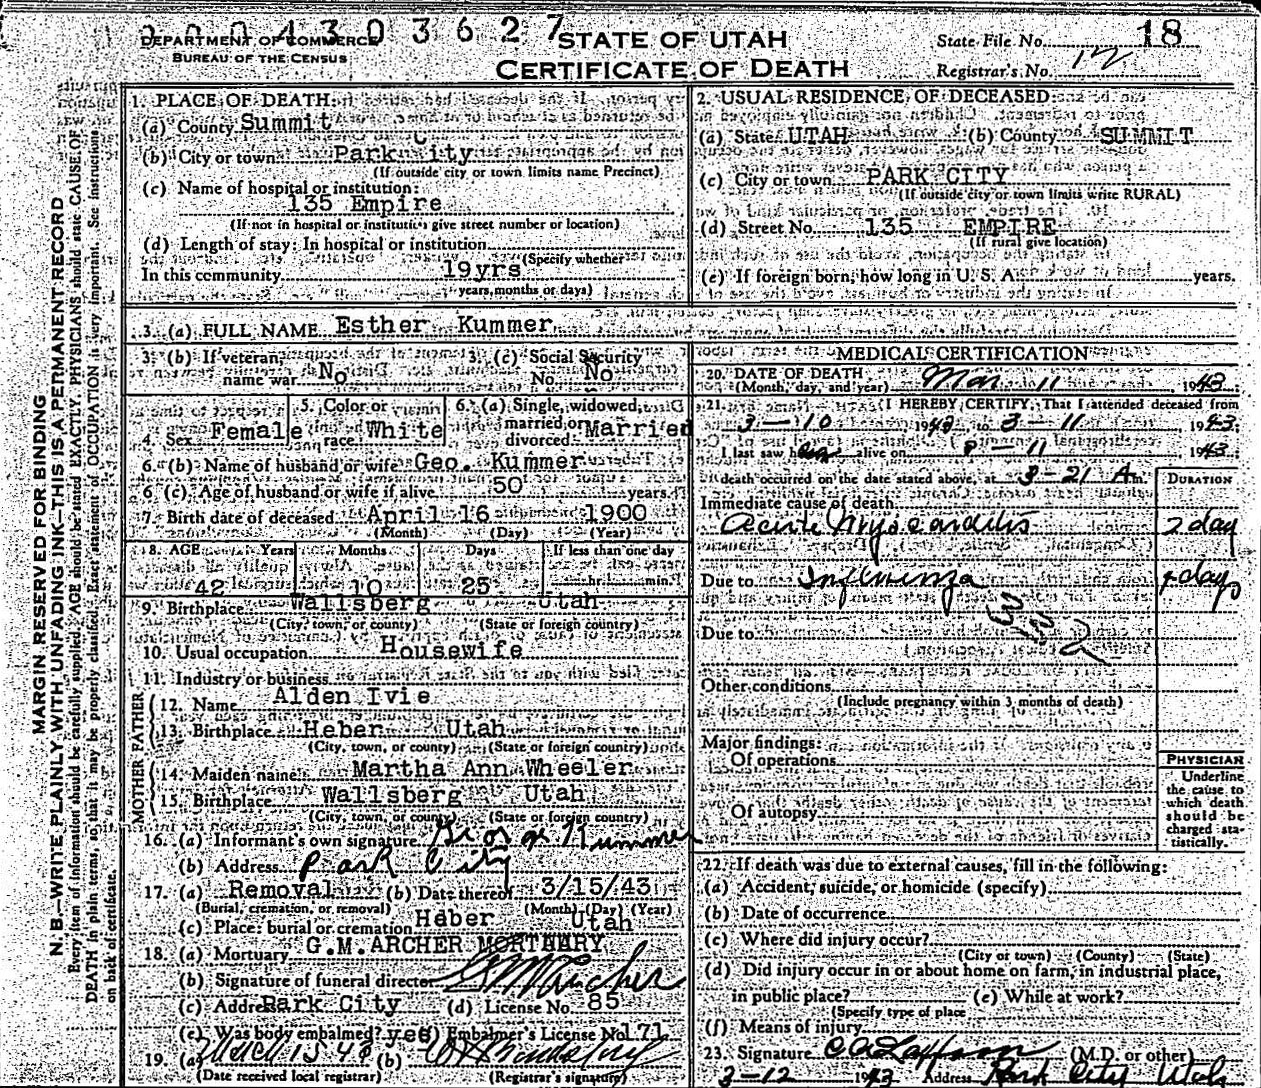 0004303627
DEPARTMENT OF COMMERCE
BUREAU OF THE CENSUS
STATE OF UTAH
CERTIFICATE OF DEATH
State File No. 18
Registrar's No. 12
MARGIN RESERVED FOR BINDING
N. B.—WRITE PLAINLY WITH UNFADING INK—THIS IS A PERMANENT RECORD
Every item of information should be carefully supplied. AGE should be stated EXACTLY. PHYSICIANS should state CAUSE OF
DEATH in plain terms, so that it may be properly classified. Exact statement of OCCUPATION is very important. See instructions
on back of certificate.
1. PLACE OF DEATH:
(a) County Summit
(b) City or town Park City
(If outside city or town limits name Precinct)
(c) Name of hospital or institution:
135 Empire
(If not in hospital or institution give street number or location)
(d) Length of stay: In hospital or institution
(Specify whether
In this community 19yrs
years, months or days)
2. USUAL RESIDENCE OF DECEASED:
(a) State UTAH (b) County SUMMIT
(c) City or town PARK CITY
(If outside city or town limits write RURAL)
(d) Street No. 135 EMPIRE
(If rural give location)
(e) If foreign born, how long in U. S. A. years.
3. (a) FULL NAME Esther Kummer
3. (b) If veteran, name war No
3. (c) Social Security No. No
4. Sex Female
5. Color or race White
6. (a) Single, widowed, married or divorced Married
6. (b) Name of husband or wife Geo. Kummer
6 (c). Age of husband or wife if alive 50 years
7. Birth date of deceased April 16 1900
(Month) (Day) (Year)
8. AGE Years Months Days If less than one day
42 10 25 hr. min.
9. Birthplace Wallsberg Utah
(City, town, or county) (State or foreign country)
10. Usual occupation Housewife
11. Industry or business
FATHER
12. Name Alden Ivie
13. Birthplace Heber Utah
(City, town, or county) (State or foreign country)
MOTHER
14. Maiden name Martha Ann Wheeler
15. Birthplace Wallsberg Utah
(City, town, or county) (State or foreign country)
16. (a) Informant's own signature George Kummer
(b) Address Park City
17. (a) Removal (b) Date thereof 3/15/43
(Burial, cremation, or removal) (Month) (Day) (Year)
(c) Place: burial or cremation Heber Utah
18. (a) Mortuary G.M.ARCHER MORTUARY
(b) Signature of funeral director GM Archer
(c) Address Park City (d) License No. 85
(e) Was body embalmed? yes (f) Embalmer's License No. 171
19. (a) March 15 43 (b)
(Date received local registrar) (Registrar's signature)
MEDICAL CERTIFICATION
20. DATE OF DEATH
(Month, day, and year) Mar 11 1943
21. I HEREBY CERTIFY, That I attended deceased from
3-10 1943, to 3-11 1943.
I last saw her alive on 11 1943
death occurred on the date stated above, at 3-21 A m.
DURATION
Immediate cause of death
Acute Myocarditis 2 day
Due to Influenza days
332
Due to
Other conditions
(Include pregnancy within 3 months of death)
Major findings:
Of operations
Of autopsy
PHYSICIAN
Underline
the cause to
which death
should be
charged sta-
tistically.
22. If death was due to external causes, fill in the following:
(a) Accident, suicide, or homicide (specify)
(b) Date of occurrence
(c) Where did injury occur?
(City or town) (County) (State)
(d) Did injury occur in or about home on farm, in industrial place,
in public place? (e) While at work?
(Specify type of place
(f) Means of injury
23. Signature (M.D. or other)
3-12 1943 Address Park City Utah